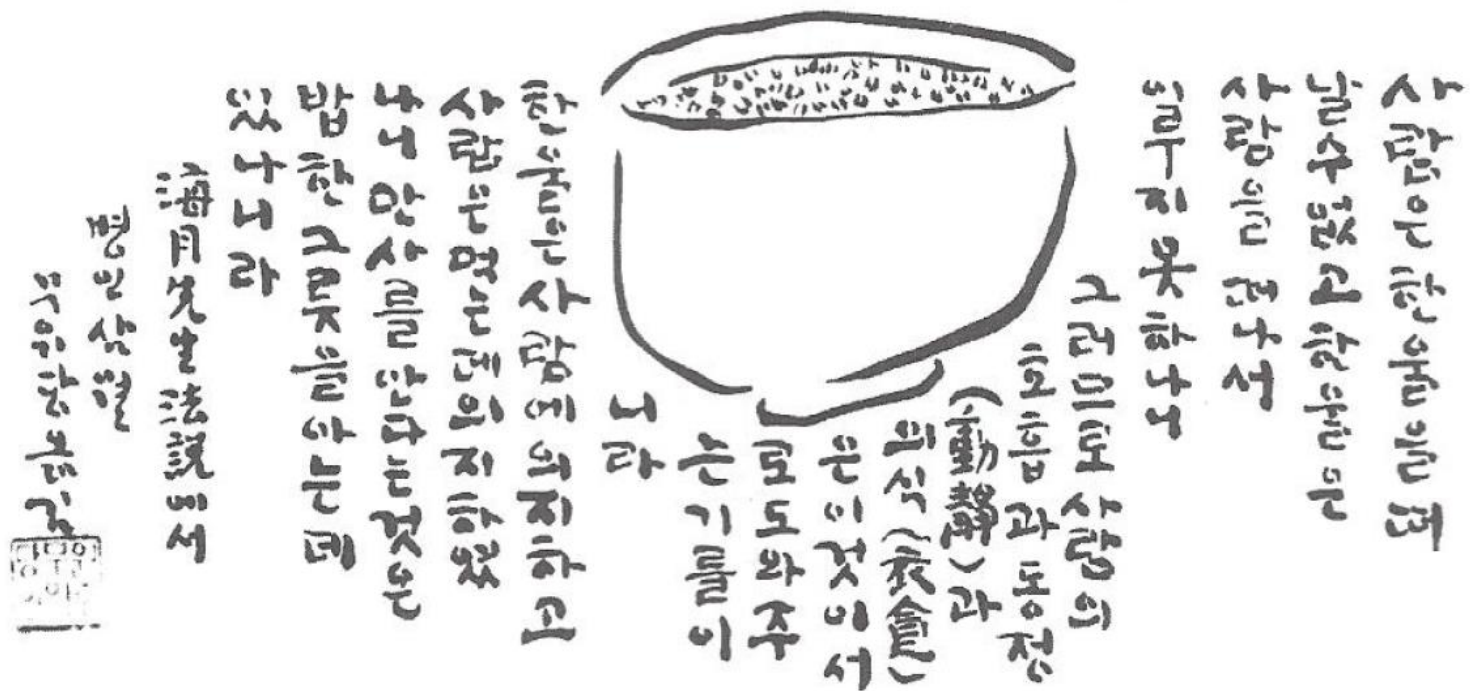 사람은 한울님을 떠
날수없고 한울님은
사람을 떠나서
이루지 못하나니
그러므로 사람의
호흡과 동정
(動靜)과
의식(衣食)
은 이것이 서
로 도와주
는 기틀이
니라
한울은 사람에 의지하고
사람은 먹는데 의지하였
나니 만사를 안다는 것은
밥 한 그릇을 아는데
있나니라
海月先生法說에서
병인삼월
무위당